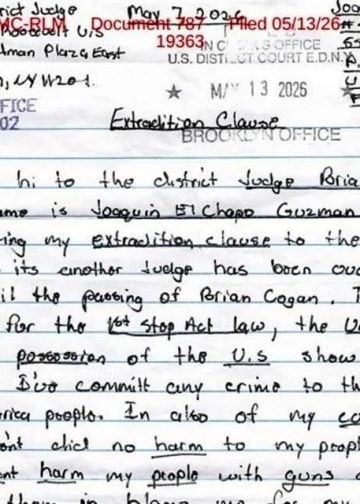 rict Judge May 7, 2026
MC-RLM Document 787 Filed 05/13/26
Roosevelt U.S 19363
IN CLERK'S OFFICE
dman Plaza East
U.S. DISTRICT COURT E.D.N.Y.
n, N.Y 11201.
★ MAY 13 2026 ★
FFICE
02
Extradition Clause
BROOKLYN OFFICE
hi to the district Judge Bria
ame is Joaquin El Chapo Guzman
ing my extradition clause to the
its another Judge has been ou
il the passing of Brian Cogan. T
for the 1st Stop Act law, the U
possession of the U.S show
I've committ any crime to th
rica people. In also of my co
n't did no harm to my peopl
ent harm my people with guns